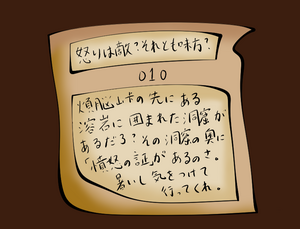 怒りは敵？それとも味方？
010
煩脳山卡の先にある
溶岩に囲まれた洞窟が
あるだろ？その洞窟の奥に
「憤怒の証」があるのさ。
暑いし気をつけて
行ってくれ。